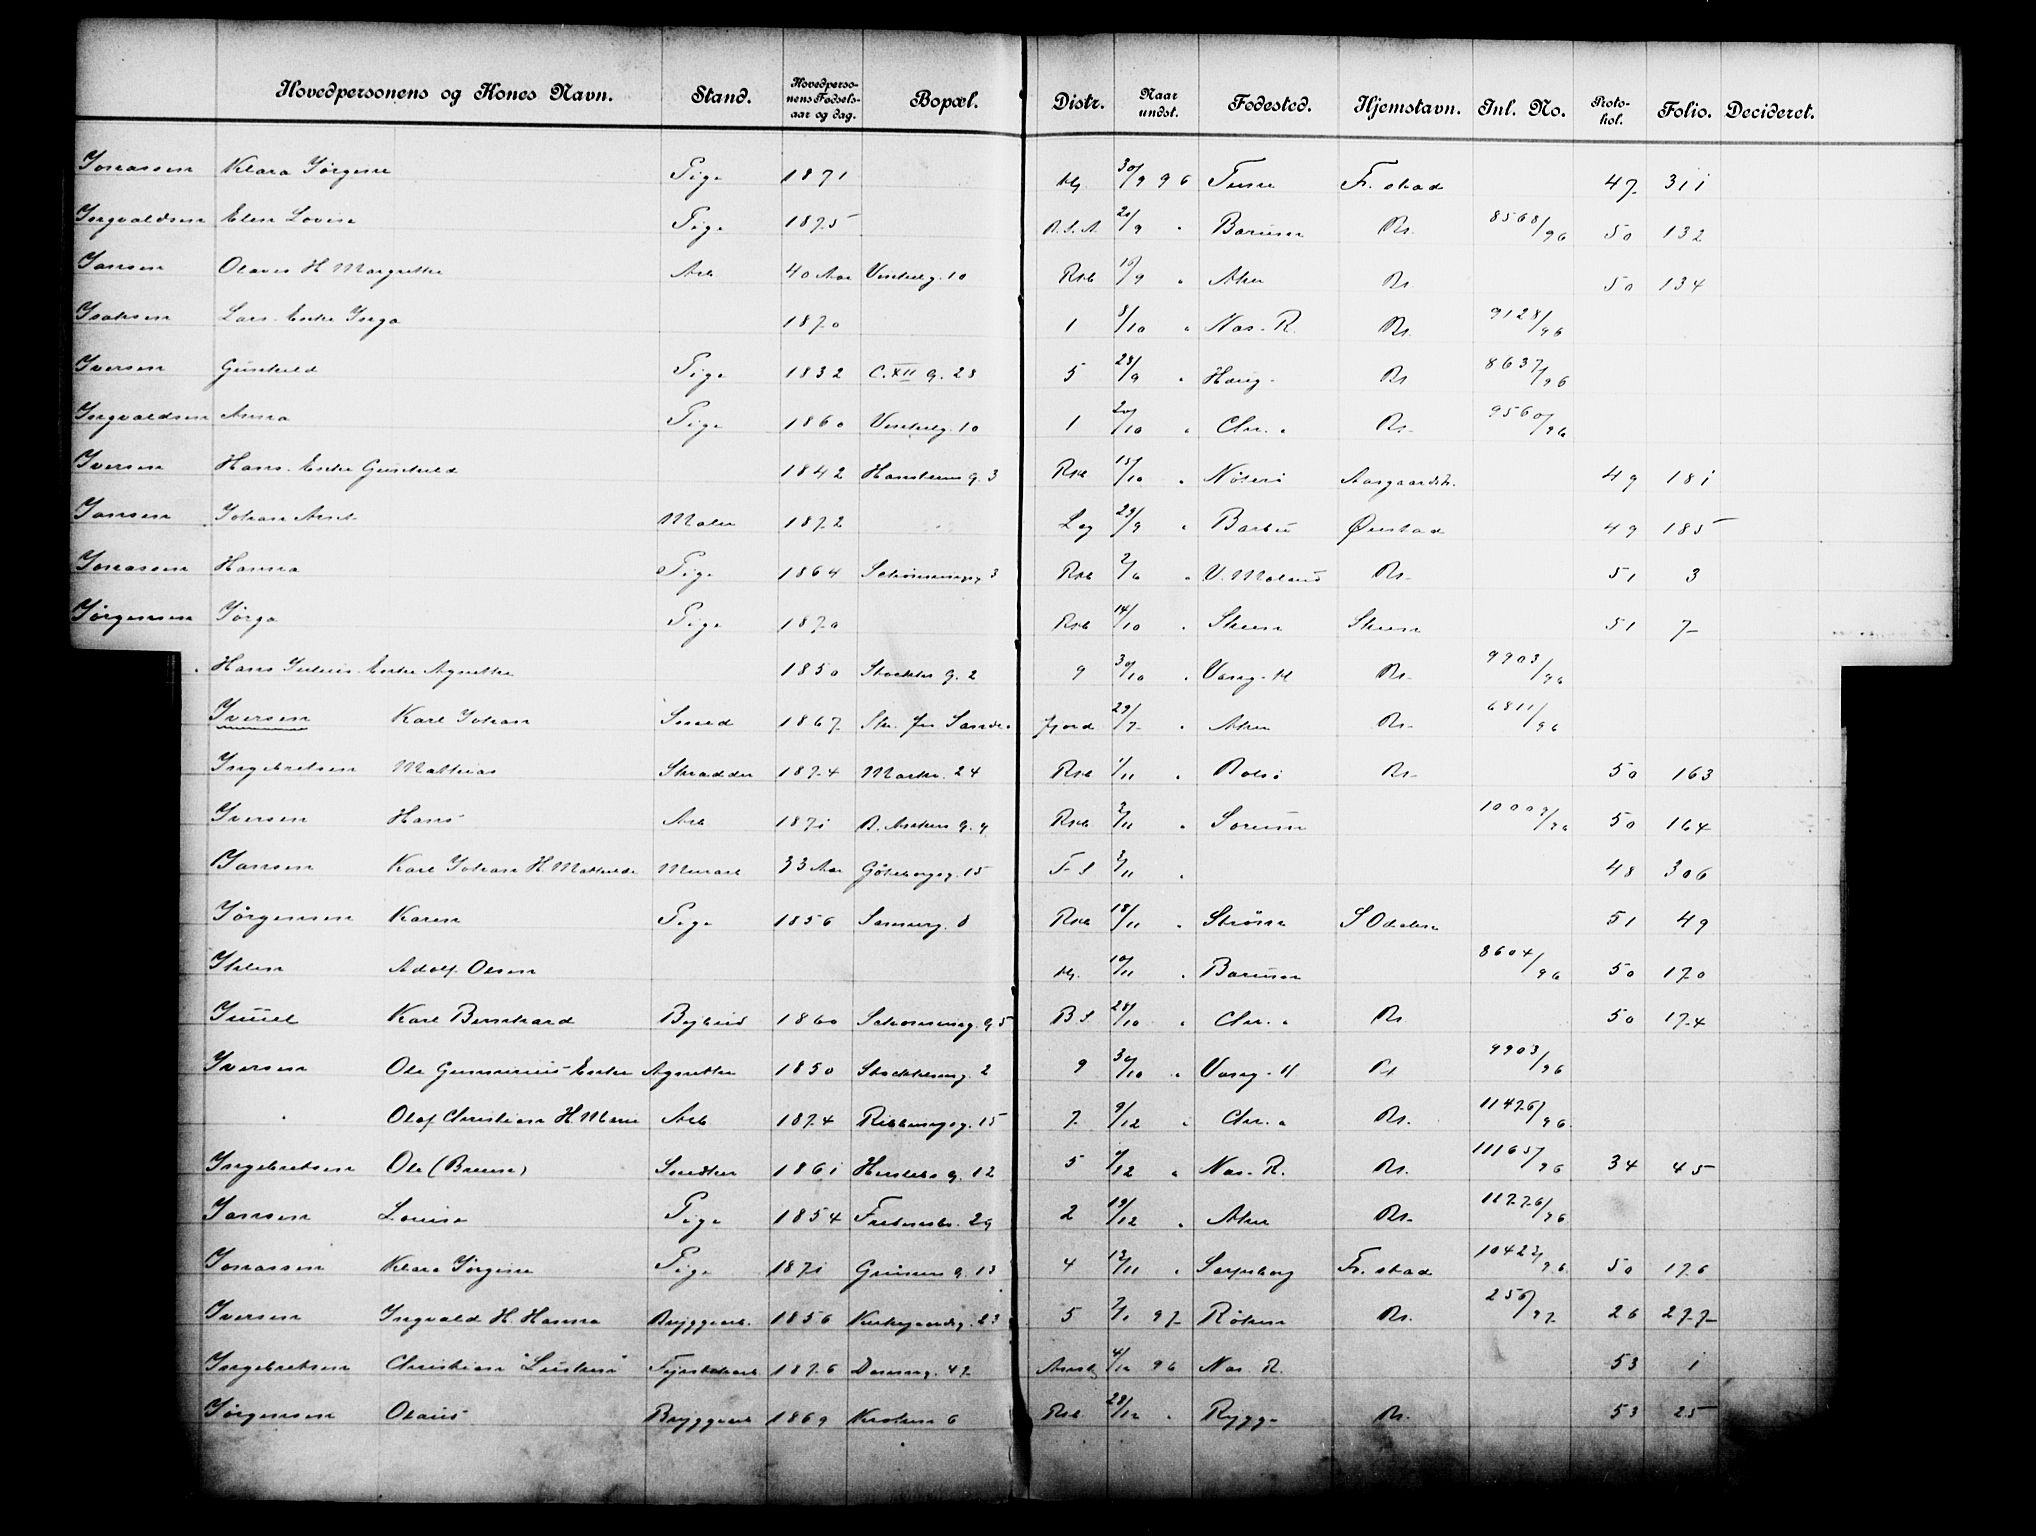 Hovedpersonens og Kones Navn. Stand. Hovedpersonens Fødselsaar og dag. Bopæl. Distr. Naar undst. Fødested. Hjemstavn. Inl. No. Protokol. Folio. Decideret.
Jonassen Klara Jørgine Pige 1871 30/9 96 Tune Fr.stad 47 311
Ingvaldsen Elen Lovise Pige 1875 21/9 " Bærum 8568/96 50 132
Jansen Olaves H. Margrethe Arb 40 Aar Vinkelg. 10 Rsb 19/9 " Aker 50 134
Isaksen Lars Enke Inga 1870 1 3/10 " Næs. R. 9128/96
Iversen Gunhild Pige 1832 C.XII g. 28 5 28/9 " Haug 8637/96
Ingvaldsen Anna Pige 1860 Vinkelg. 10 1 20/10 " Chr.a 9560/96
Iversen Hans Enke Gunhild 1842 Hausmans g. 3 Rsb 15/10 " Nøterø Aasgaardstr. 49 181
Jansen Johan Arnt Maler 1872 Leg 23/9 " Barbu Øiestad 49 185
Jonassen Hanna Pige 1864 Schønningsg. 3 Rsb 2/6 " Ø. Moland 51 3
Jørgensen Jørga Pige 1870 Rsb 14/10 " Skien Skien 51 7
" Hans Julius Enke Agnethe 1850 Stockhs g. 2 9 30/10 " Vang-H 9903/96
Iversen Karl Johan Smed 1867 Fjord 29/7 " Aker 6811/96
Ingebretsen Mathias Skrædder 1874 Markv. 24 Rsb 7/11 " Bolsø 50 163
Iversen Hans Arb 1871 B. Ankers g. 4 Rsb 2/11 " Sørum 10009/96 50 164
Jansen Karl Johan H. Mathilde Murarb 33 Aar Gøteborgg. 15 F.S 2/11 " 48 306
Jørgensen Karen Pige 1856 Sannerg. 8 Rsb 18/11 " Strøm S Odalen 51 49
Ihlen Adolf Olsen 10/11 " Bærum 8604/96 50 170
Juuel Karl Bernhard Bejbud 1860 Schønningg. 95 B.S 28/10 " Chr.a 50 174
Iversen Ole Gunnerius Enke Agnethe 1850 Stockholmsg. 2 9 30/10 " Vang-H 9903/96
" Olaf Christian H. Marie Arb 1874 Rebslagerg. 15 7 9/12 " Chr.a 11476/96
Ingebretsen Ole (Bruun) Snedker 1861 Herslebs g. 12 5 7/12 " Næs. R. 11165/96 34 45
Jansen Lovise Pige 1854 Fredensb. 29 2 19/12 " Aker 11776/96
Jonassen Klara Jørgine Pige 1871 Grüners g. 13 4 12/11 " Sarpsborg Fr.stad 10422/96 50 176
Iversen Ingvald H. Hanna Bryggearb. 1856 Kirkegaardsg. 23 5 2/1 97 Røken 256/97 26 277
Ingebretsen Christian "Lusken" Fyrstikarb 1876 Darresg. 47 4/12 96 Næs. R. 53 1
Jørgensen Olaus Bryggearb 1869 Kirkev. 6 Rsb 28/12 " Rygge 53 25